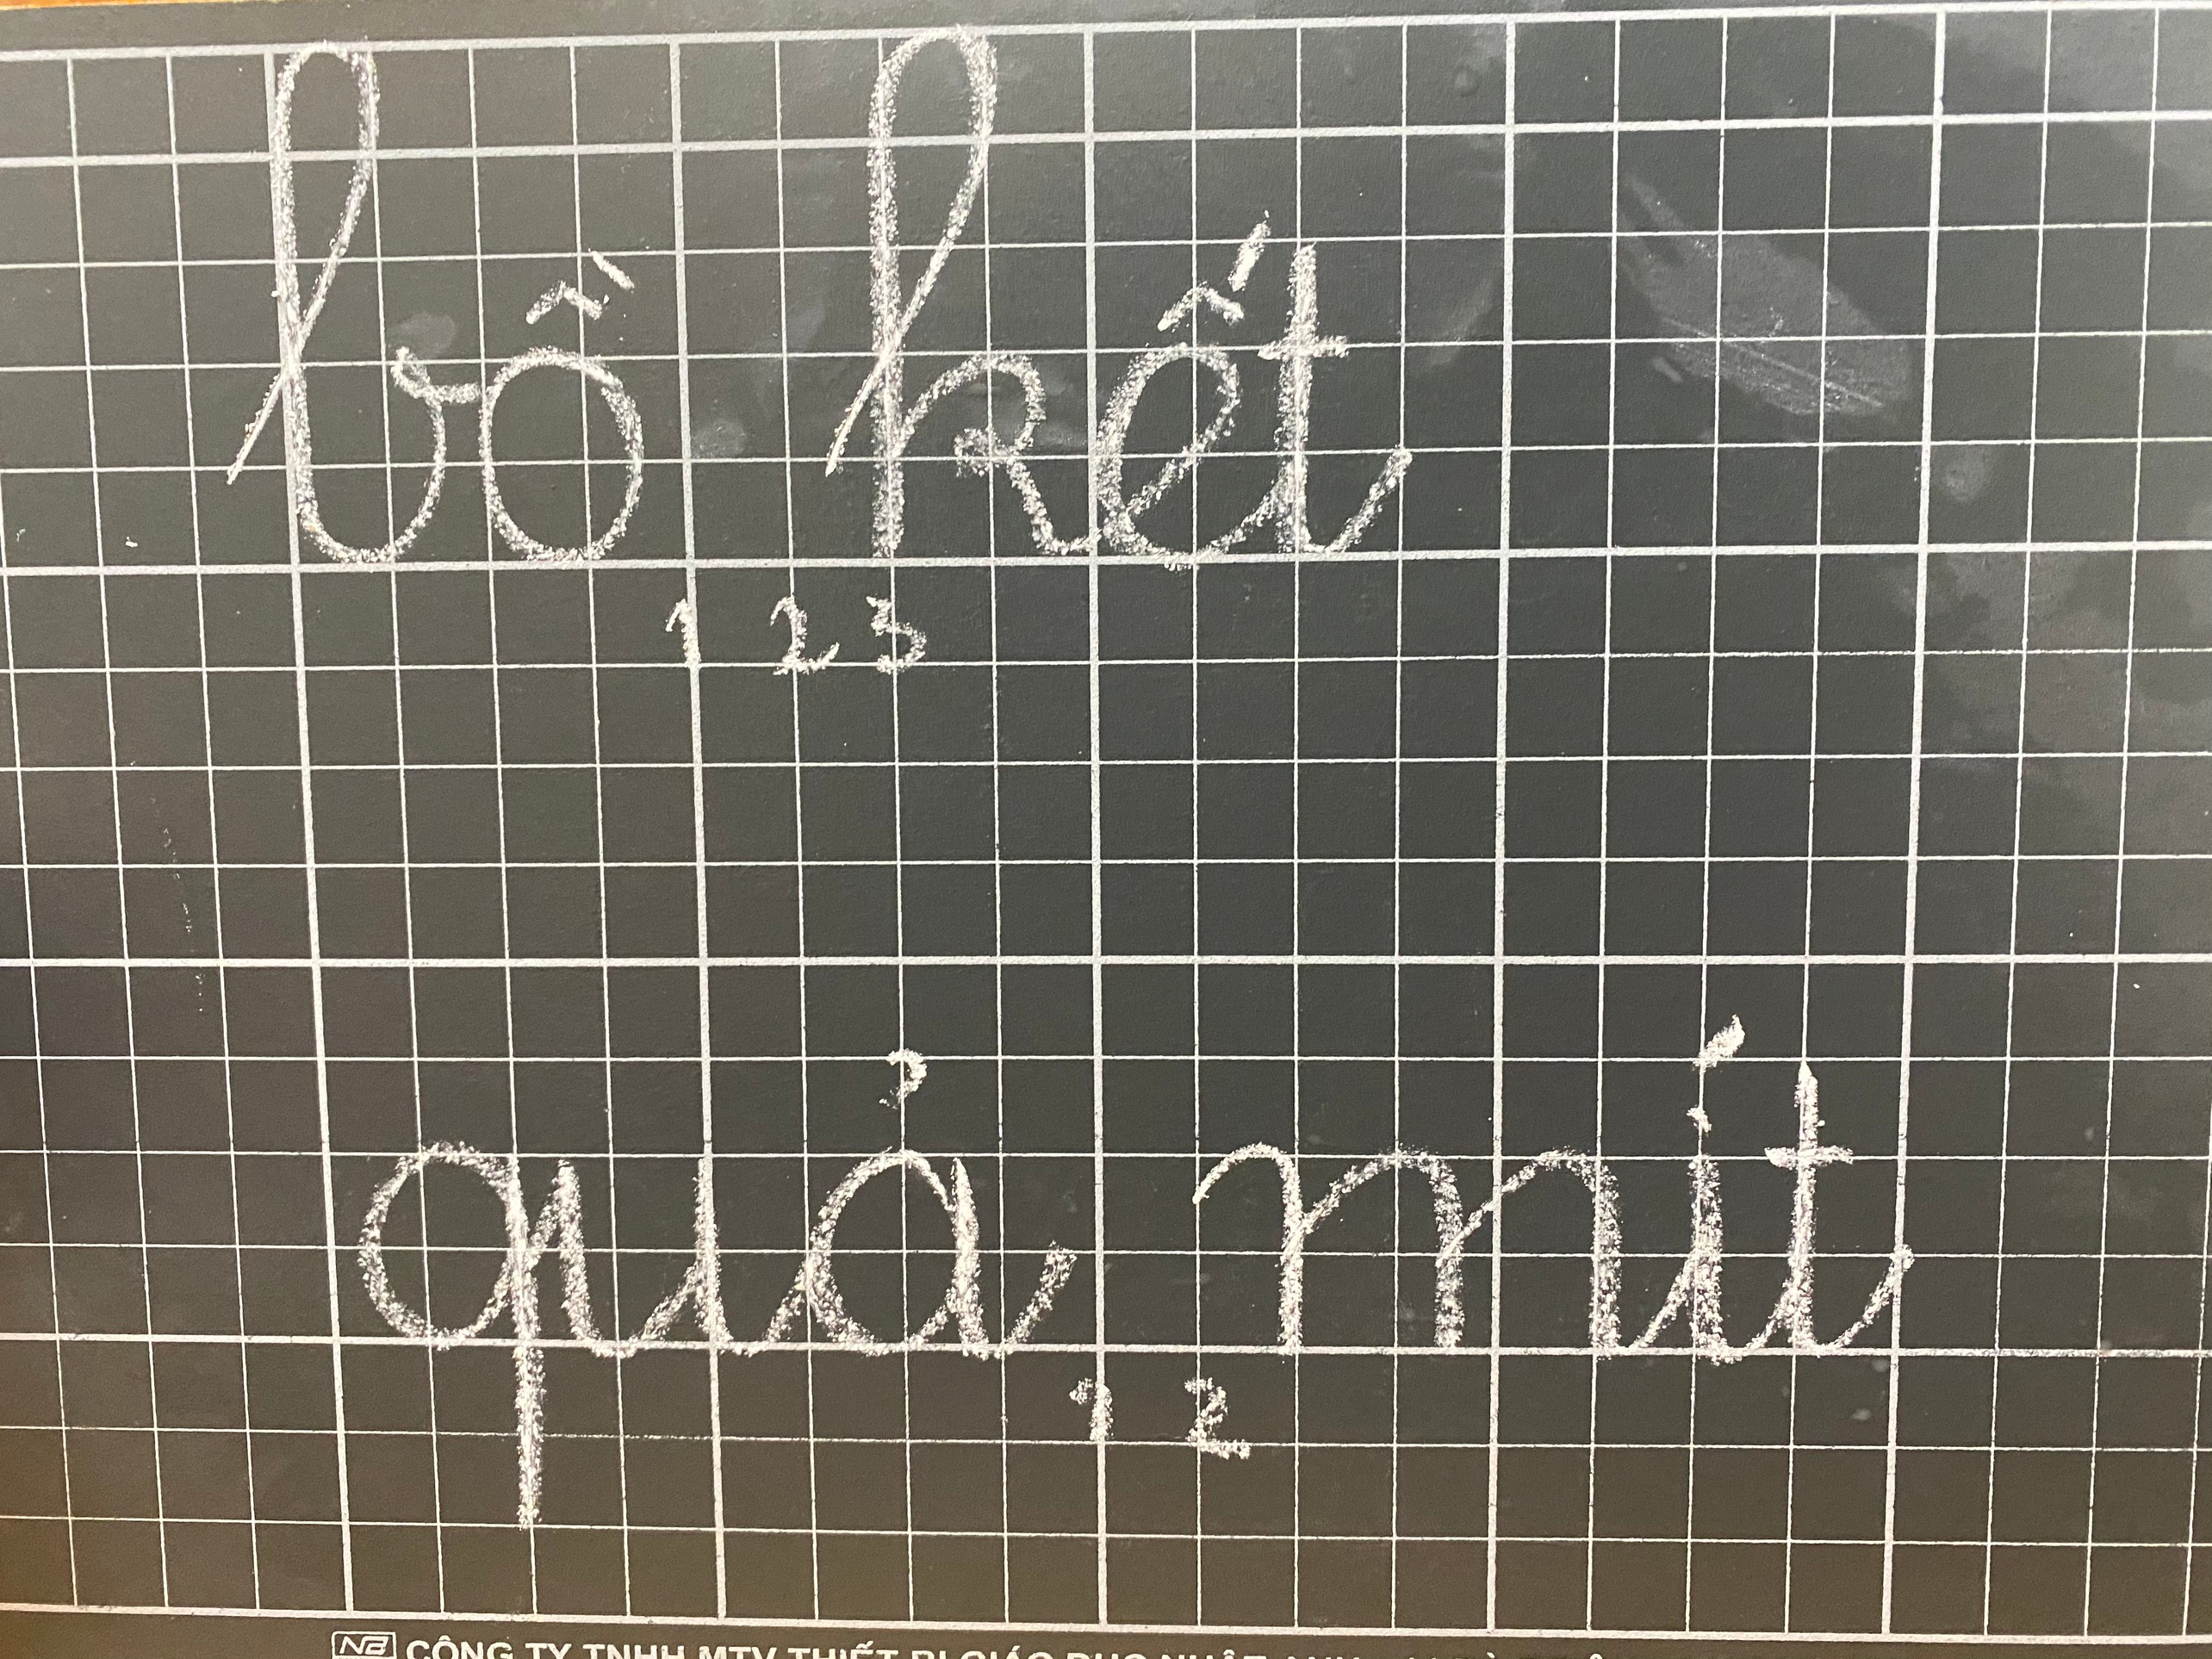 bồ kết
1 2 3
quả mít
1 2
NB CÔNG TY TNHH MTV THIẾT BỊ GIÁO DỤC NHẬT ANH